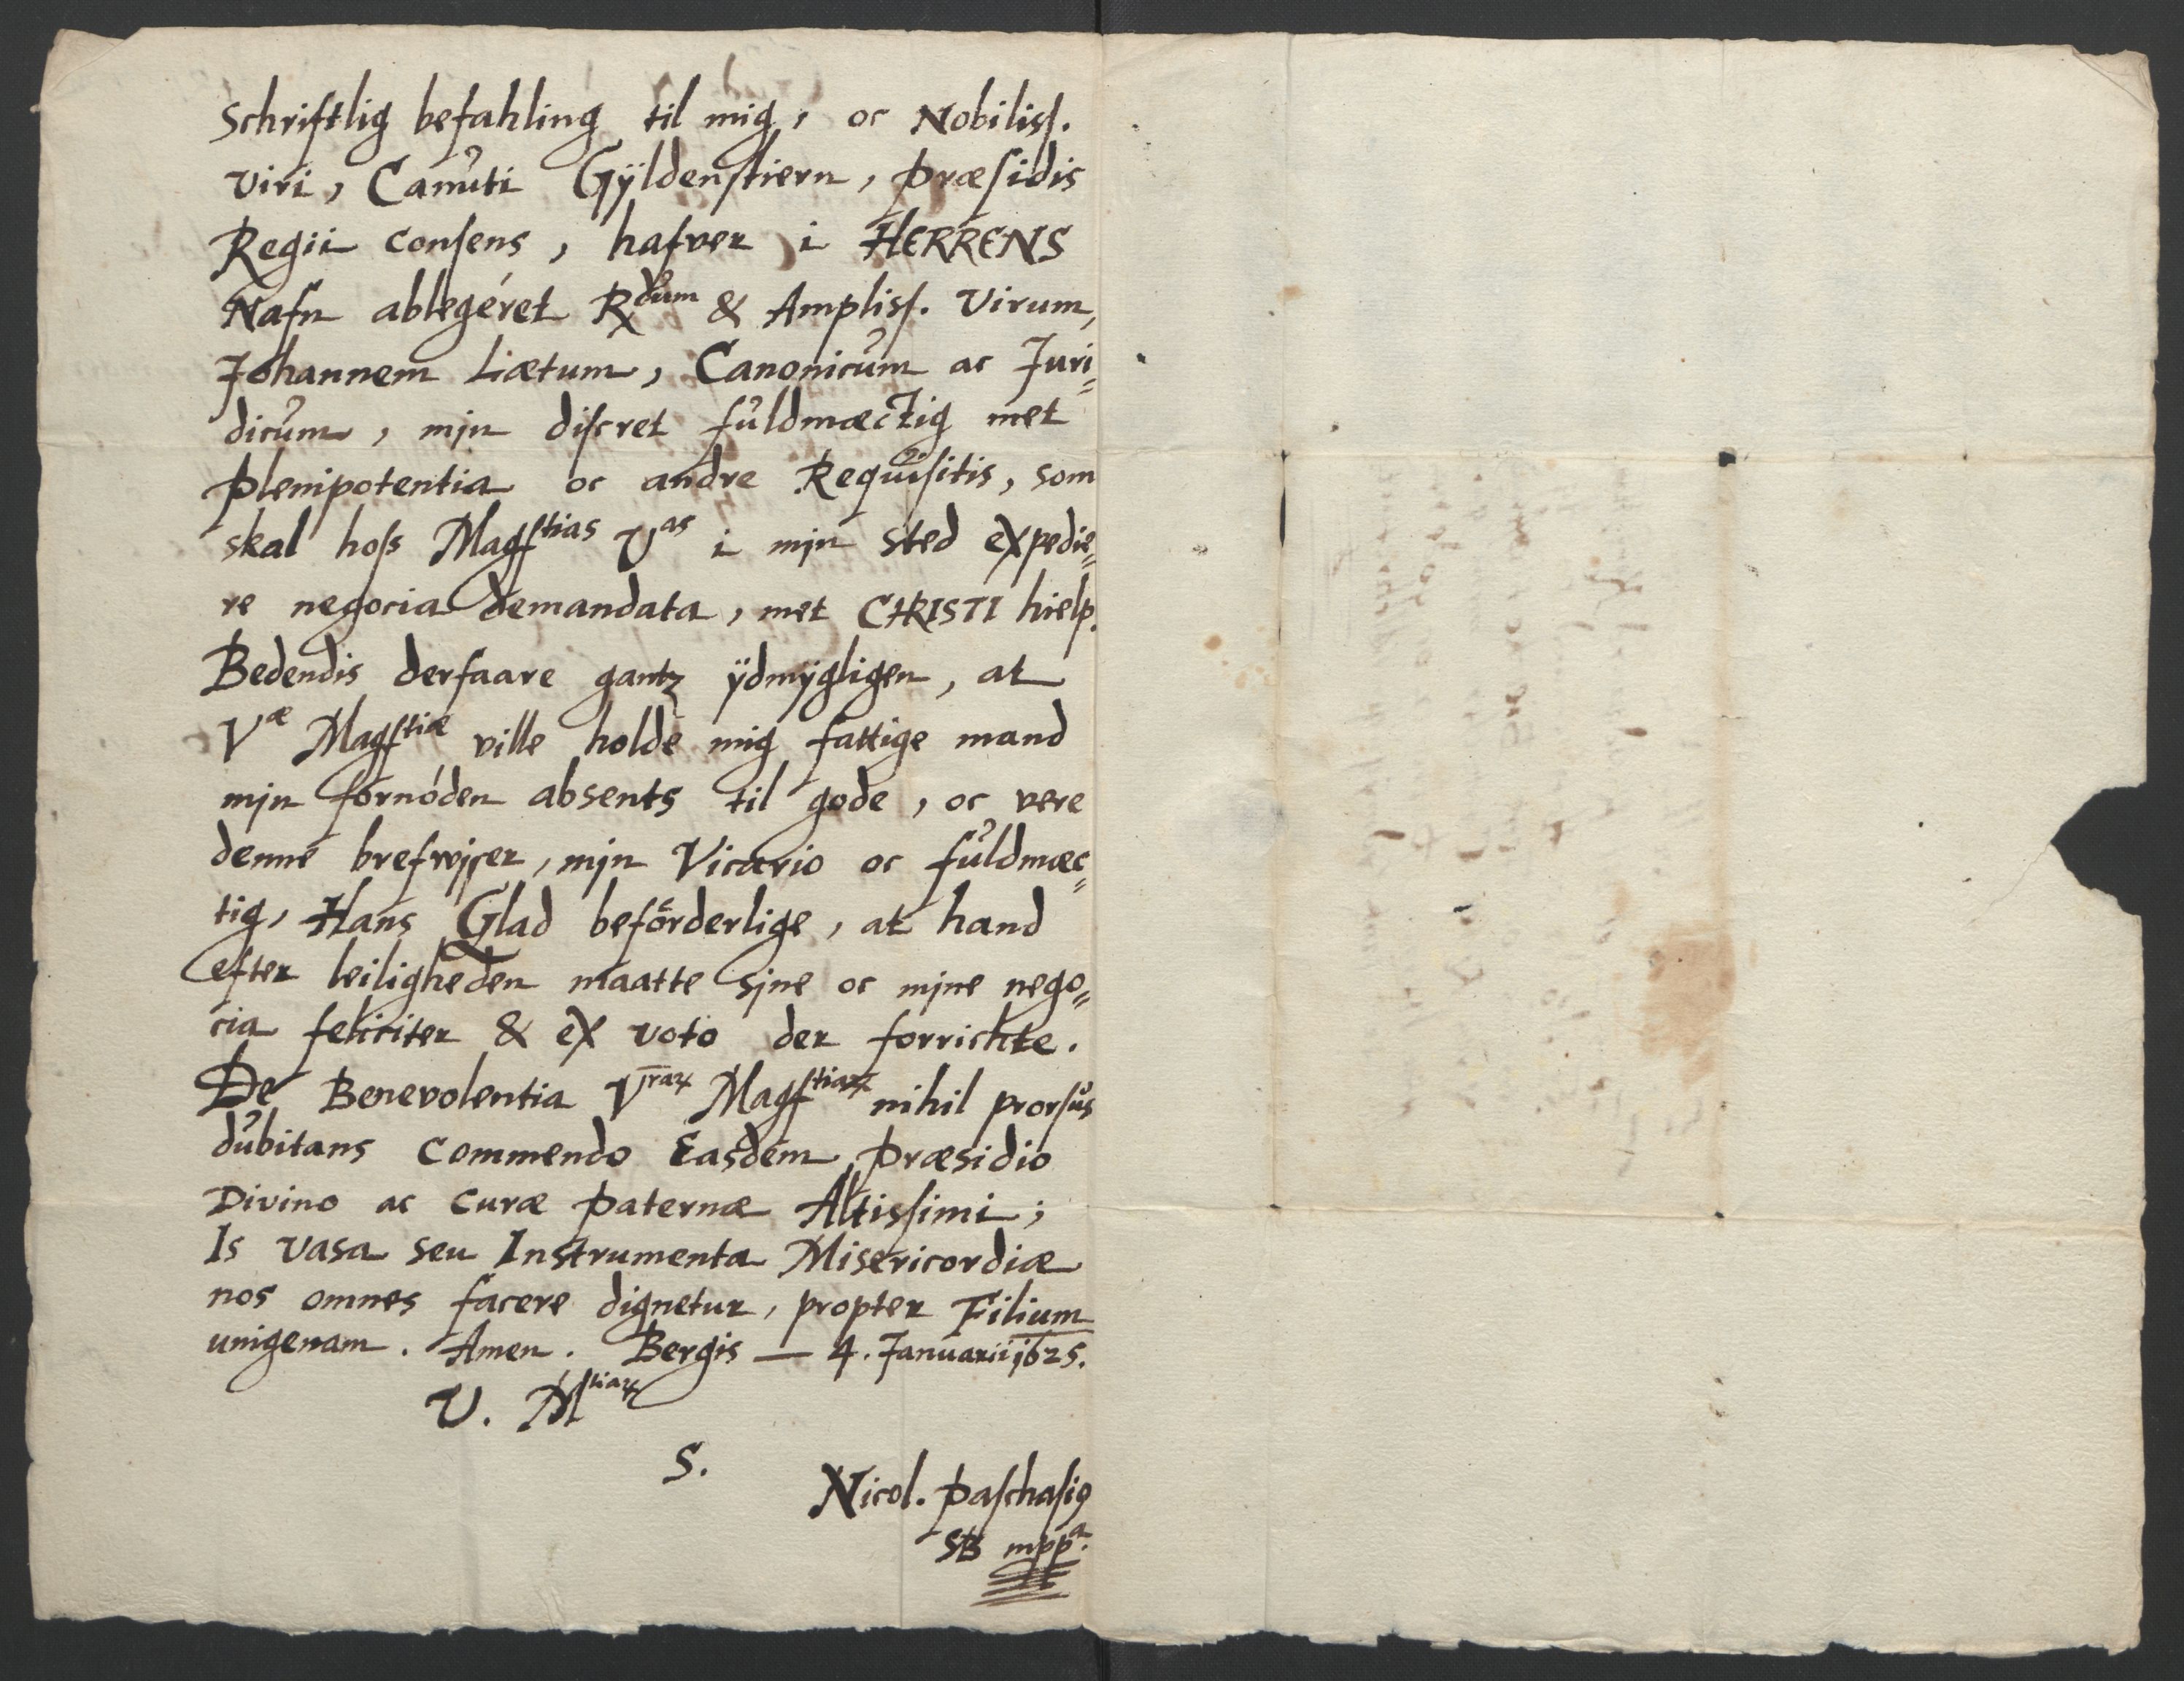 Schriftlig befahling til mig, oc Nobiliss.
viri, Canuti Gÿldenstiern, Præsidis
Regii consens, hafver i HERRENS
Nafn ablegéret Rdum & Ampliss. Virum,
Johannem Lætum, Canonicum ac Juri=
dicum, mjn discret fuldmæctig met
Plenipotentia oc andre Requisitis, som
skal hoss Magftias Vas i mjn sted expedie=
re negocia demandata, met CHRISTI hielp.
Bedendis derfaare gantz ÿdmÿgligen, at
Væ Magftiæ ville holde mig fattige mand
mjn fornóden absents til gode, oc vere
denne brefvijser, mjn Vicario oc fuldmæc=
tig, Hans Glad beförderlige, at hand
efter leiligheden maatte sjne oc mjne nego=
cia feliciter & ex voto der forrichte.
De Benevolentia Vraꝝ Magftiaꝝ nihil prorsus
dubitans commendo Easdem Præsidio
Divino ac curæ Paternæ Altissimi;
Is vasa seu Instrumenta Misericordiæ
nos omnes facere dignetur, propter Filium
unigenam. Amen. Bergis — 4. Januarii 1625.
V. Mtiaꝝ
S.
Nicol. Paschasiꝰ
SB mppa.